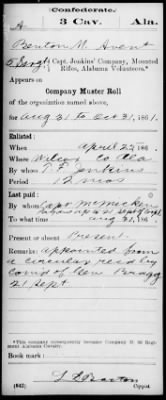 Confederate.
A 3 Cav. Ala.
Benton M. Avent
Sergt, Capt. Jenkins' Company, Mounted
Rifles, Alabama Volunteers.*
Appears on
Company Muster Roll
of the organization named above,
for Aug 31 to Oct 31, 1861.
Enlisted:
When April 22, 186
Where Wilcox Co Ala
By T. F. Jenkins
Period 12 mos
Last paid:
By Capt
To what time Aug 31, 1861.
Present or absent Present
Remarks: appointed from
a circular recd by
comd of Gen Bragg
21 Sept
*This company subsequently became Company A, 3d Regi-
ment Alabama Cavalry.
Book mark:
(642)
Copyist.